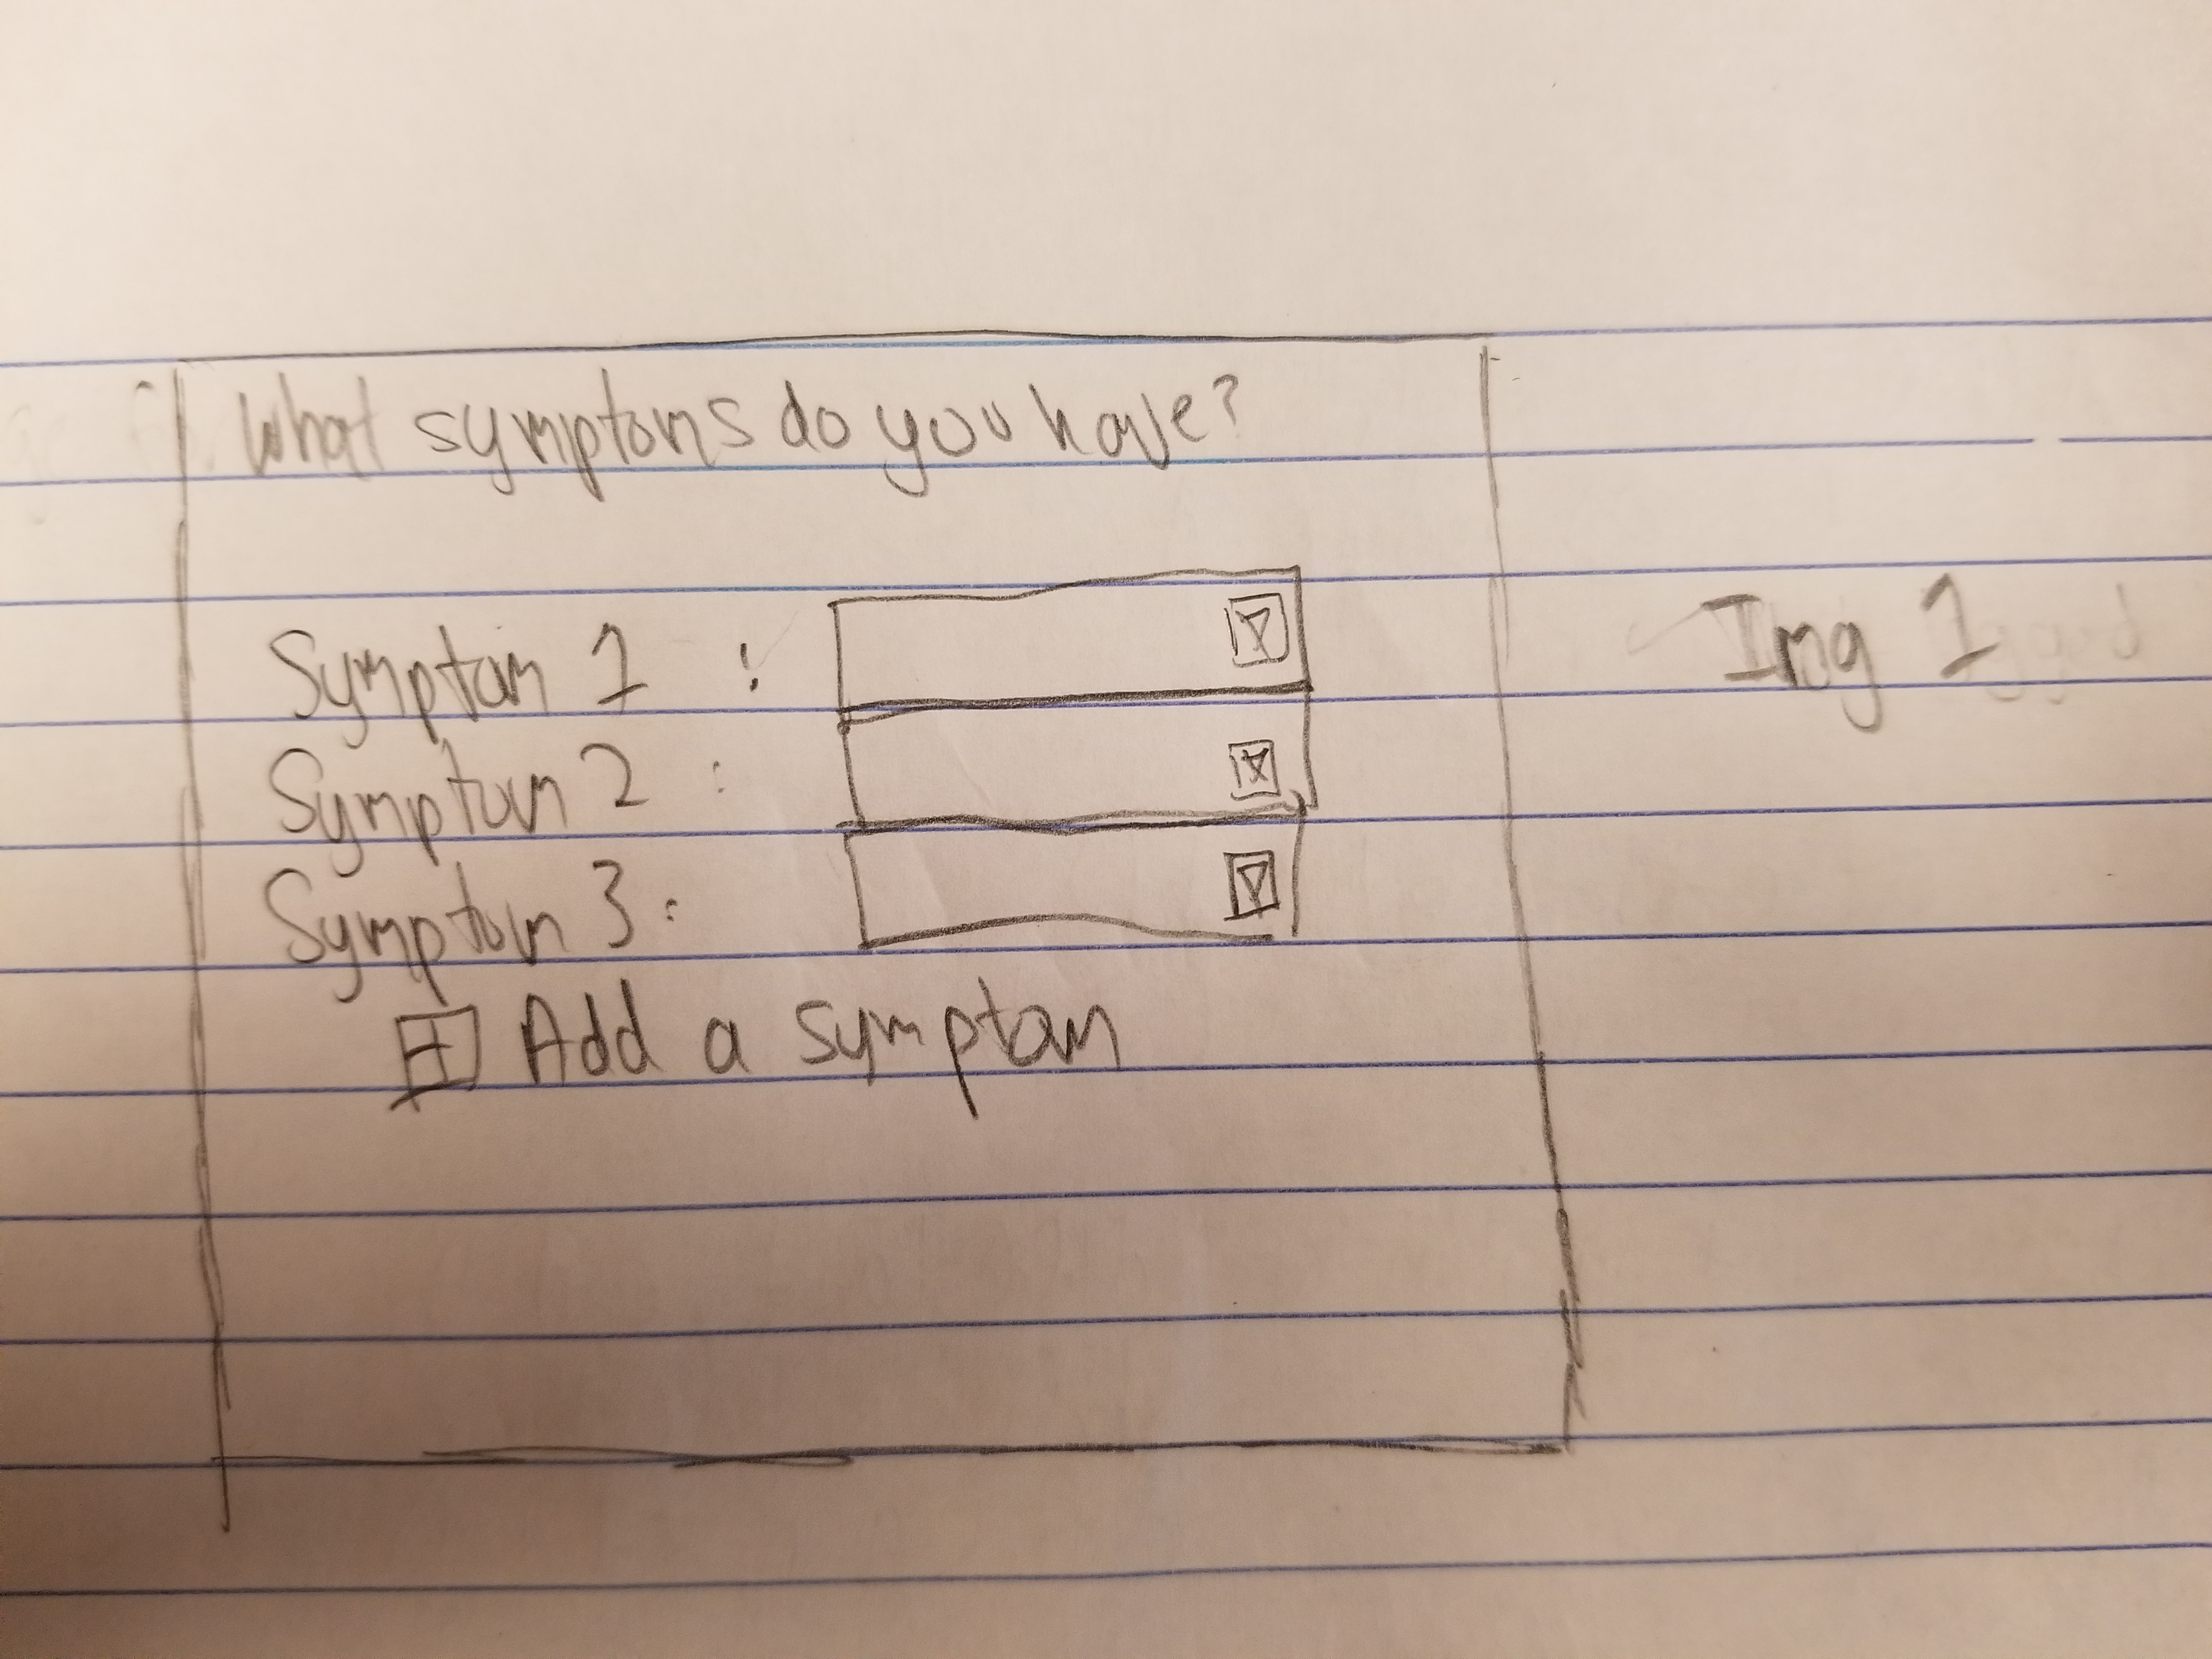 What symptoms do you have?
Symptom 1 :
Symptom 2 :
Symptom 3 :
+ Add a symptom
Img 1